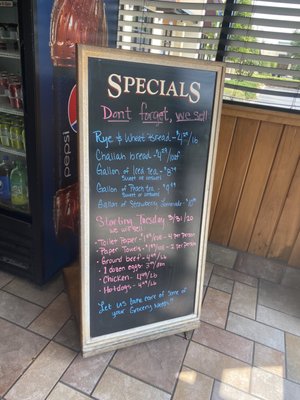 SPECIALS
Dont forget, we sell
Rye & Wheat Bread - $4.29/lb
Challah bread - $4.29/loaf
Gallon of Iced Tea
Sweet or unsweet
Gallon of Peach tea
Sweet or
Gallon of Strawberry Lemonade
Starting Tuesday 3/31/20
we will sell
• Toilet Paper - 4 per Person
• Paper Towels - 2 per Person
• Ground beef 4.99/Lb
• 1 dozen eggs
• Chicken - 4.99/Lb
• Hotdogs - 4.99/Lb
Let us take care of some of
your Grocery Needs!!
pepsi